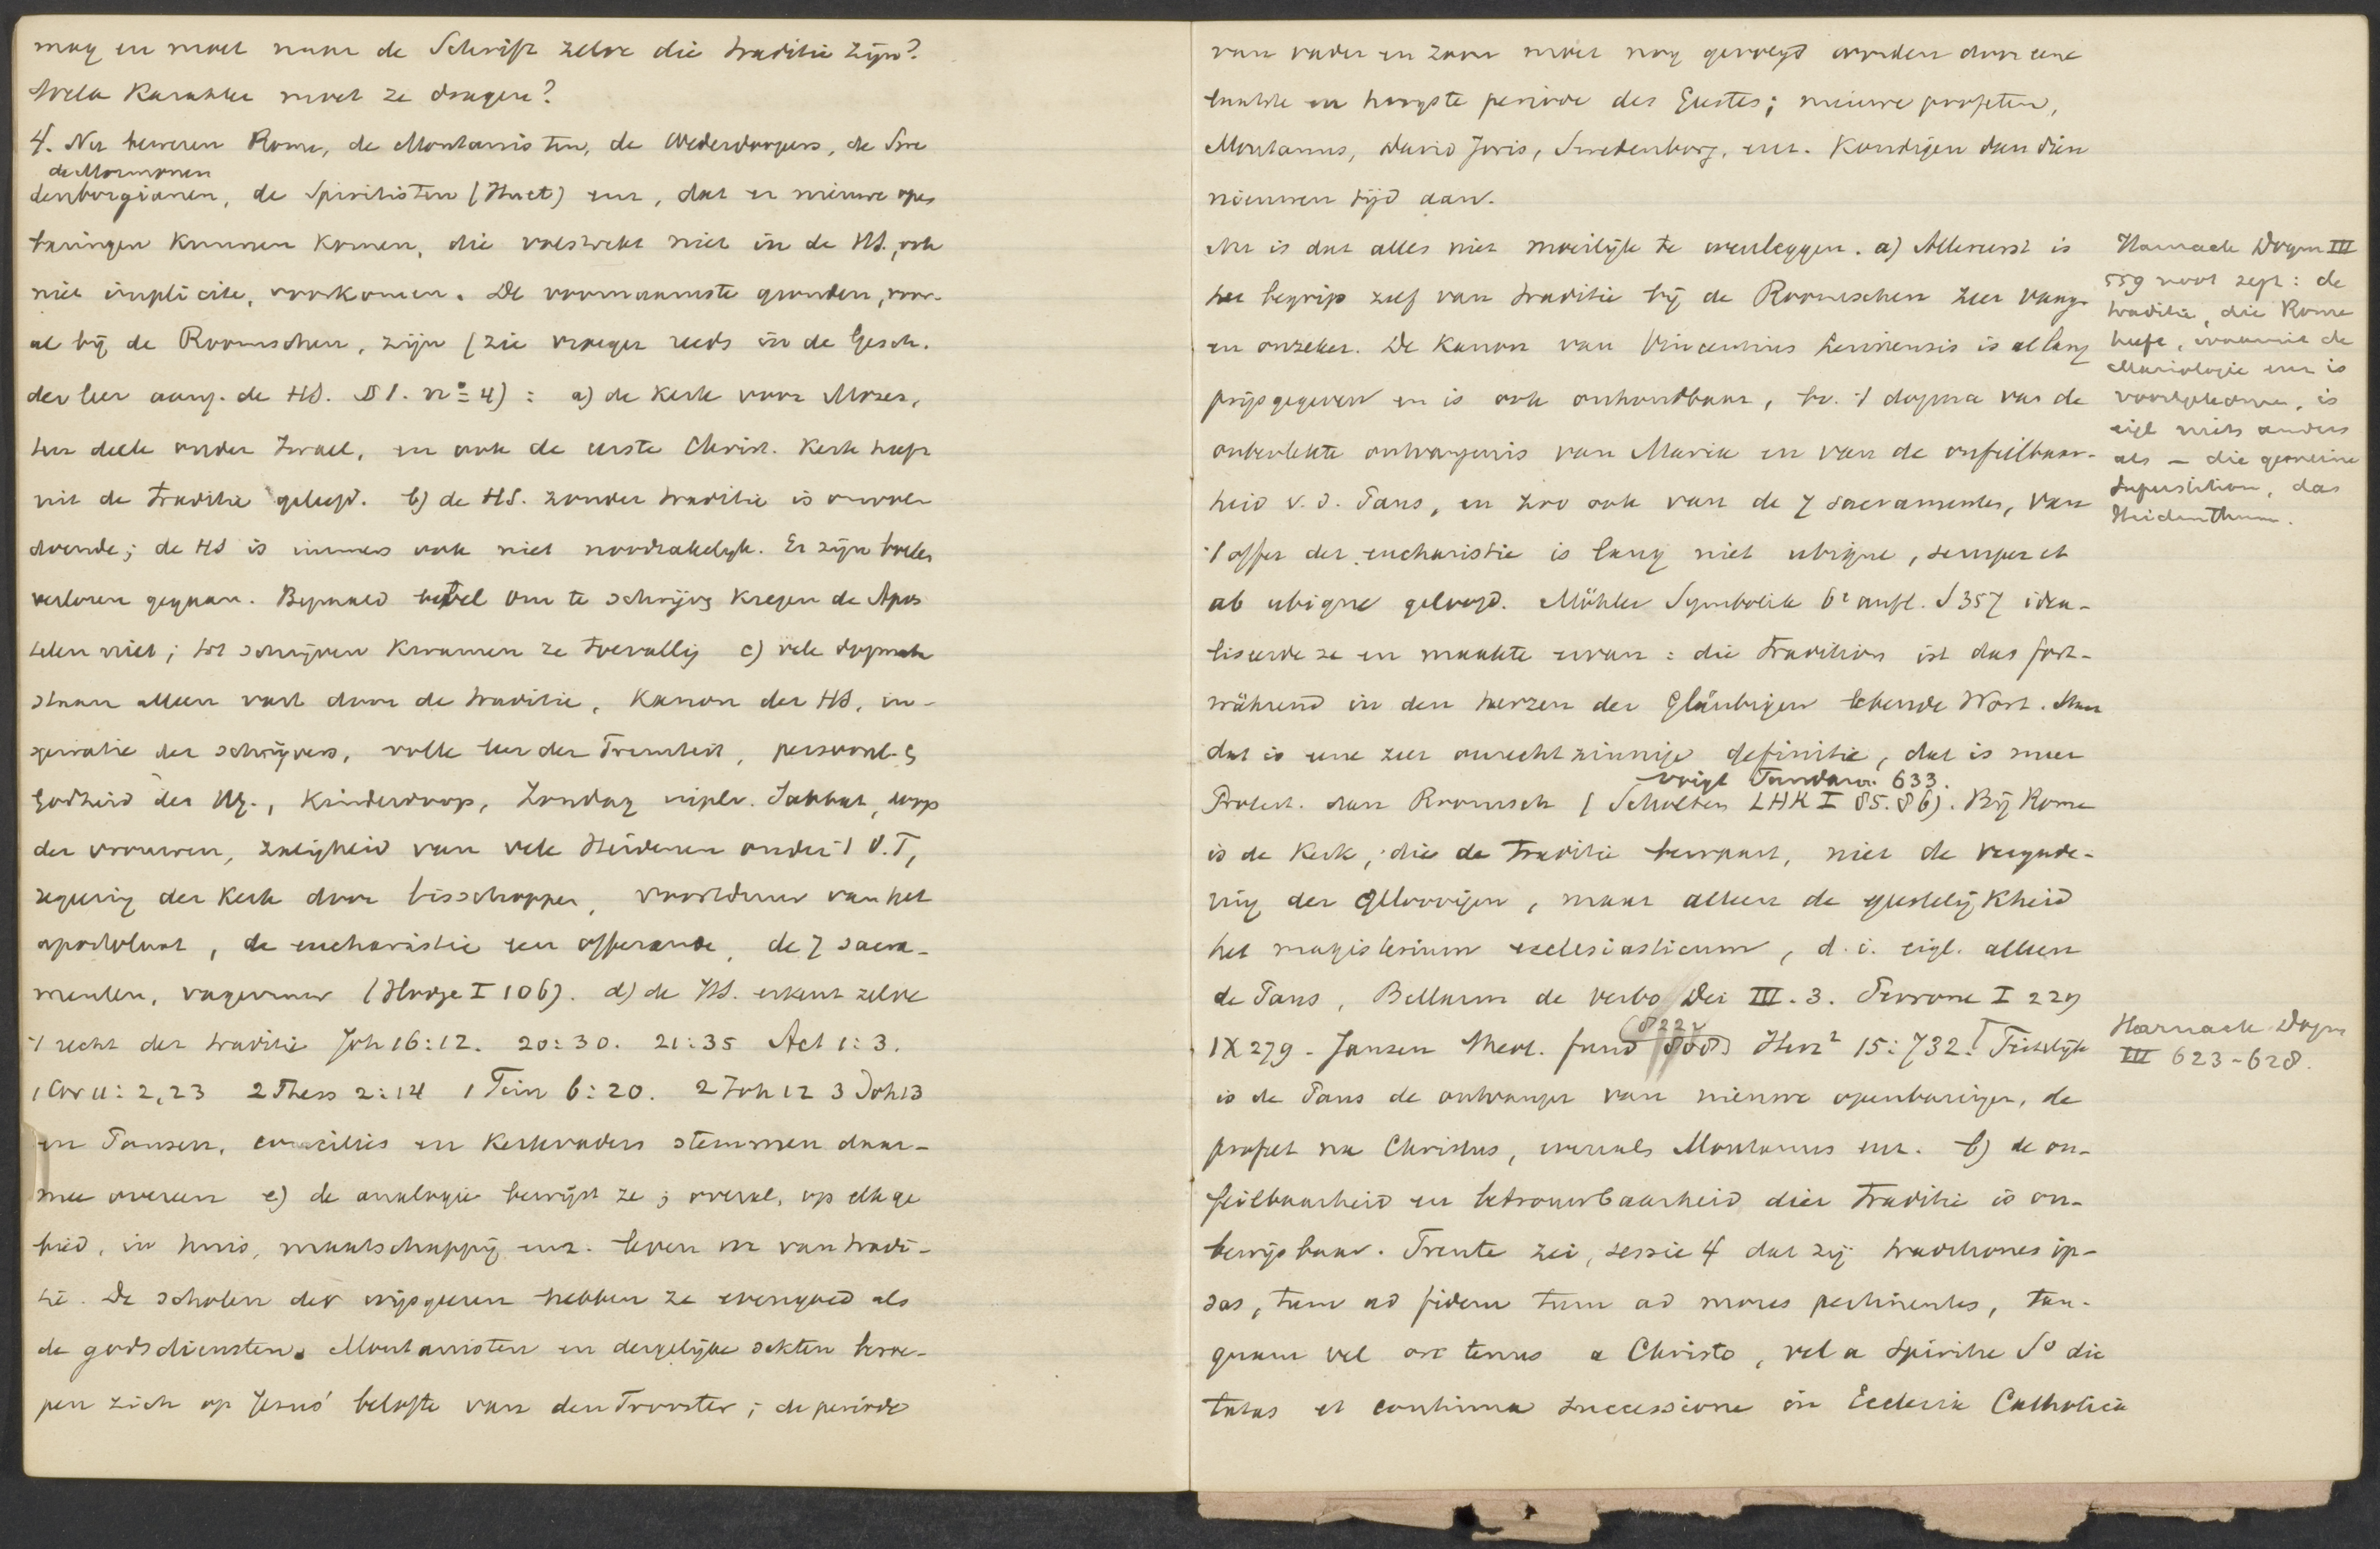 mag en moet naar de Schrift zelve die traditie zijn?
Welk karakter moet ze dragen?
4. Nu beweren Rome, de Montanisten, de Wederdoopers, de Swe
de Mormonen
denborgianen, de Spiritisten (Huet) enz, dat er nieuwe open
baringen kunnen komen, die volstrekt niet in de HS., ook
niet implicite, voorkomen. De voornaamste gronden, voor-
al bij de Roomschen, zijn (zie vroeger reeds in de Gesch.
der leer aang. de HS. § 1. no 4) : a) de kerk voor Mozes,
ten deele onder Israel, en ook de eerste Christ. Kerk heeft
uit de traditie geleefd. b) de HS. zonder traditie is onvol-
doende; de HS is immers ook niet noodzakelijk. Er zijn boeken
verloren gegaan. Bepaald bevel om te schrijven kregen de Apos
telen niet; tot schrijven kwamen ze toevallig c) vele dogmata
staan alleen vast door de traditie, Kanon der HS, in-
spiratie der schrijvers, volle leer der Triniteit, persoonl. &
Godheid des HG., Kinderdoop, Zondag in pl. v. Sabbat, doop
der vrouwen, zaligheid van vele Heidenen onder 't O.T,
regering der kerk door bisschoppen, voortduur van het
apostolaat, de eucharistie een offerande, de 7 sacra-
menten, vagevuur (Hodge I 106). d) de HS. erkent zelve
't recht der traditie Joh 16:12. 20:30. 21:35 Act 1:3.
1 Cor 11: 2,23 2 Thess 2:14 1 Tim 6:20. 2 Joh 12 3 Joh 13
en Pausen, conciliës en Kerkvaders stemmen daar-
mee overeen e) de analogie bewijst ze; overal, op elk ge
bied, in huis, maatschappij enz. leven we van tradi-
tie. De scholen der wijsgeeren hebben ze evengoed als
de godsdiensten. Montanisten en dergelijke sekten beroe-
pen zich op Jezus' belofte van den Trooster; de periode
van vader en zoon moet nog gevolgd worden door eene
laatste en hoogste periode des Geestes; nieuwe profeten,
Montanus, David Joris, Swedenborg, enz. kondigen dan dien
nieuwen tijd aan.
Nu is dat alles niet moeilijk te weerleggen. a) Allereerst is
het begrip zelf van traditie bij de Roomschen zeer vaag
en onzeker. De kanon van Vincentius Lerinensis is al lang
prijsgegeven en is ook onhoudbaar, bv. 't dogma van de
onbevlekte ontvangenis van Maria en van de onfeilbaar-
heid v. d. Paus, en zoo ook van de 7 sacramenten, van
't offer der eucharistie is lang niet ubique, semper et
ab ubique geloofd. Möhler Symbolik 6e aufl. S 357 idea-
liseerde ze en maakte ervan : die Tradition ist das fort-
während in den Herzen der Gläubigen lebende Wort. Maar
dat is eene zeer onrechtzinnige definitie, dat is meer
Voigt Fundam. 633.
Protest. dan Roomsch (Scholten LHK I 85. 86). Bij Rome
is de Kerk, die de Traditie bewaart, niet de vergade-
ring der Geloovigen, maar alleen de geestelijkheid
het magisterium ecclesiasticum, d. i. eigl. alleen
de Paus, Bellarm de verbo Dei III. 3. Perrone I 229
IX 279 - Jansen Theol. fund Herz² 15: 732. Feitelijk
is de Paus de ontvanger van nieuwe openbaringen, de
profeet na Christus, evenals Montanus enz. b) de on-
feilbaarheid en betrouwbaarheid dier Traditie is on-
bewijsbaar. Trente zei, sessie 4 dat zij traditiones ip-
sas, tum ad fidem tum ad mores pertinentes, tan-
quam vel ore tenus a Christo, vel a Spiritu So dic
tatas et continua successione in Ecclesia Catholica
Harnack Dogm III
559 noot zegt : de
traditie, die Rome
heeft, waaruit de
Mariologie enz is
voortgekomen, is
eigl niets anders
als – die gemeine
Superstition, das
Heidenthum.
Harnack Dogm
III 623-628.